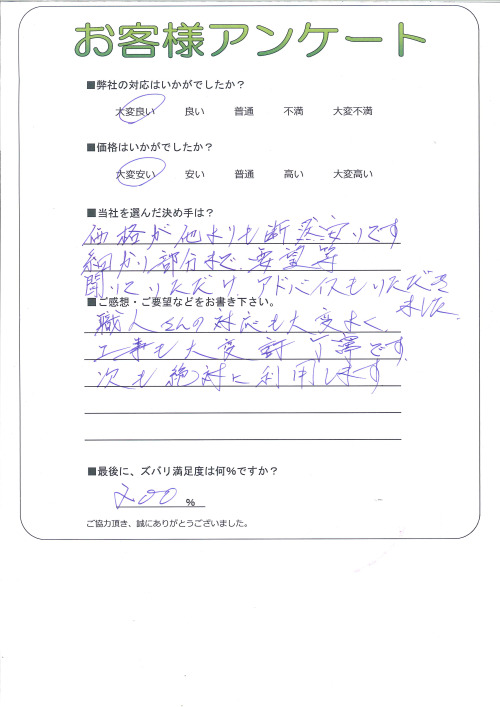 お客様アンケート
■弊社の対応はいかがでしたか？
大変良い 良い 普通 不満 大変不満
■価格はいかがでしたか？
大変安い 安い 普通 高い 大変高い
■当社を選んだ決め手は？
価格が他よりも断然安いです
細かい部分まで要望等
聞いていただけ アドバイスもいただき
ました。
■ご感想・ご要望などをお書き下さい。
職人さんの対応も大変よく
工事も大変 丁寧です
次も絶対に利用します
■最後に、ズバリ満足度は何％ですか？
200 %
ご協力頂き、誠にありがとうございました。